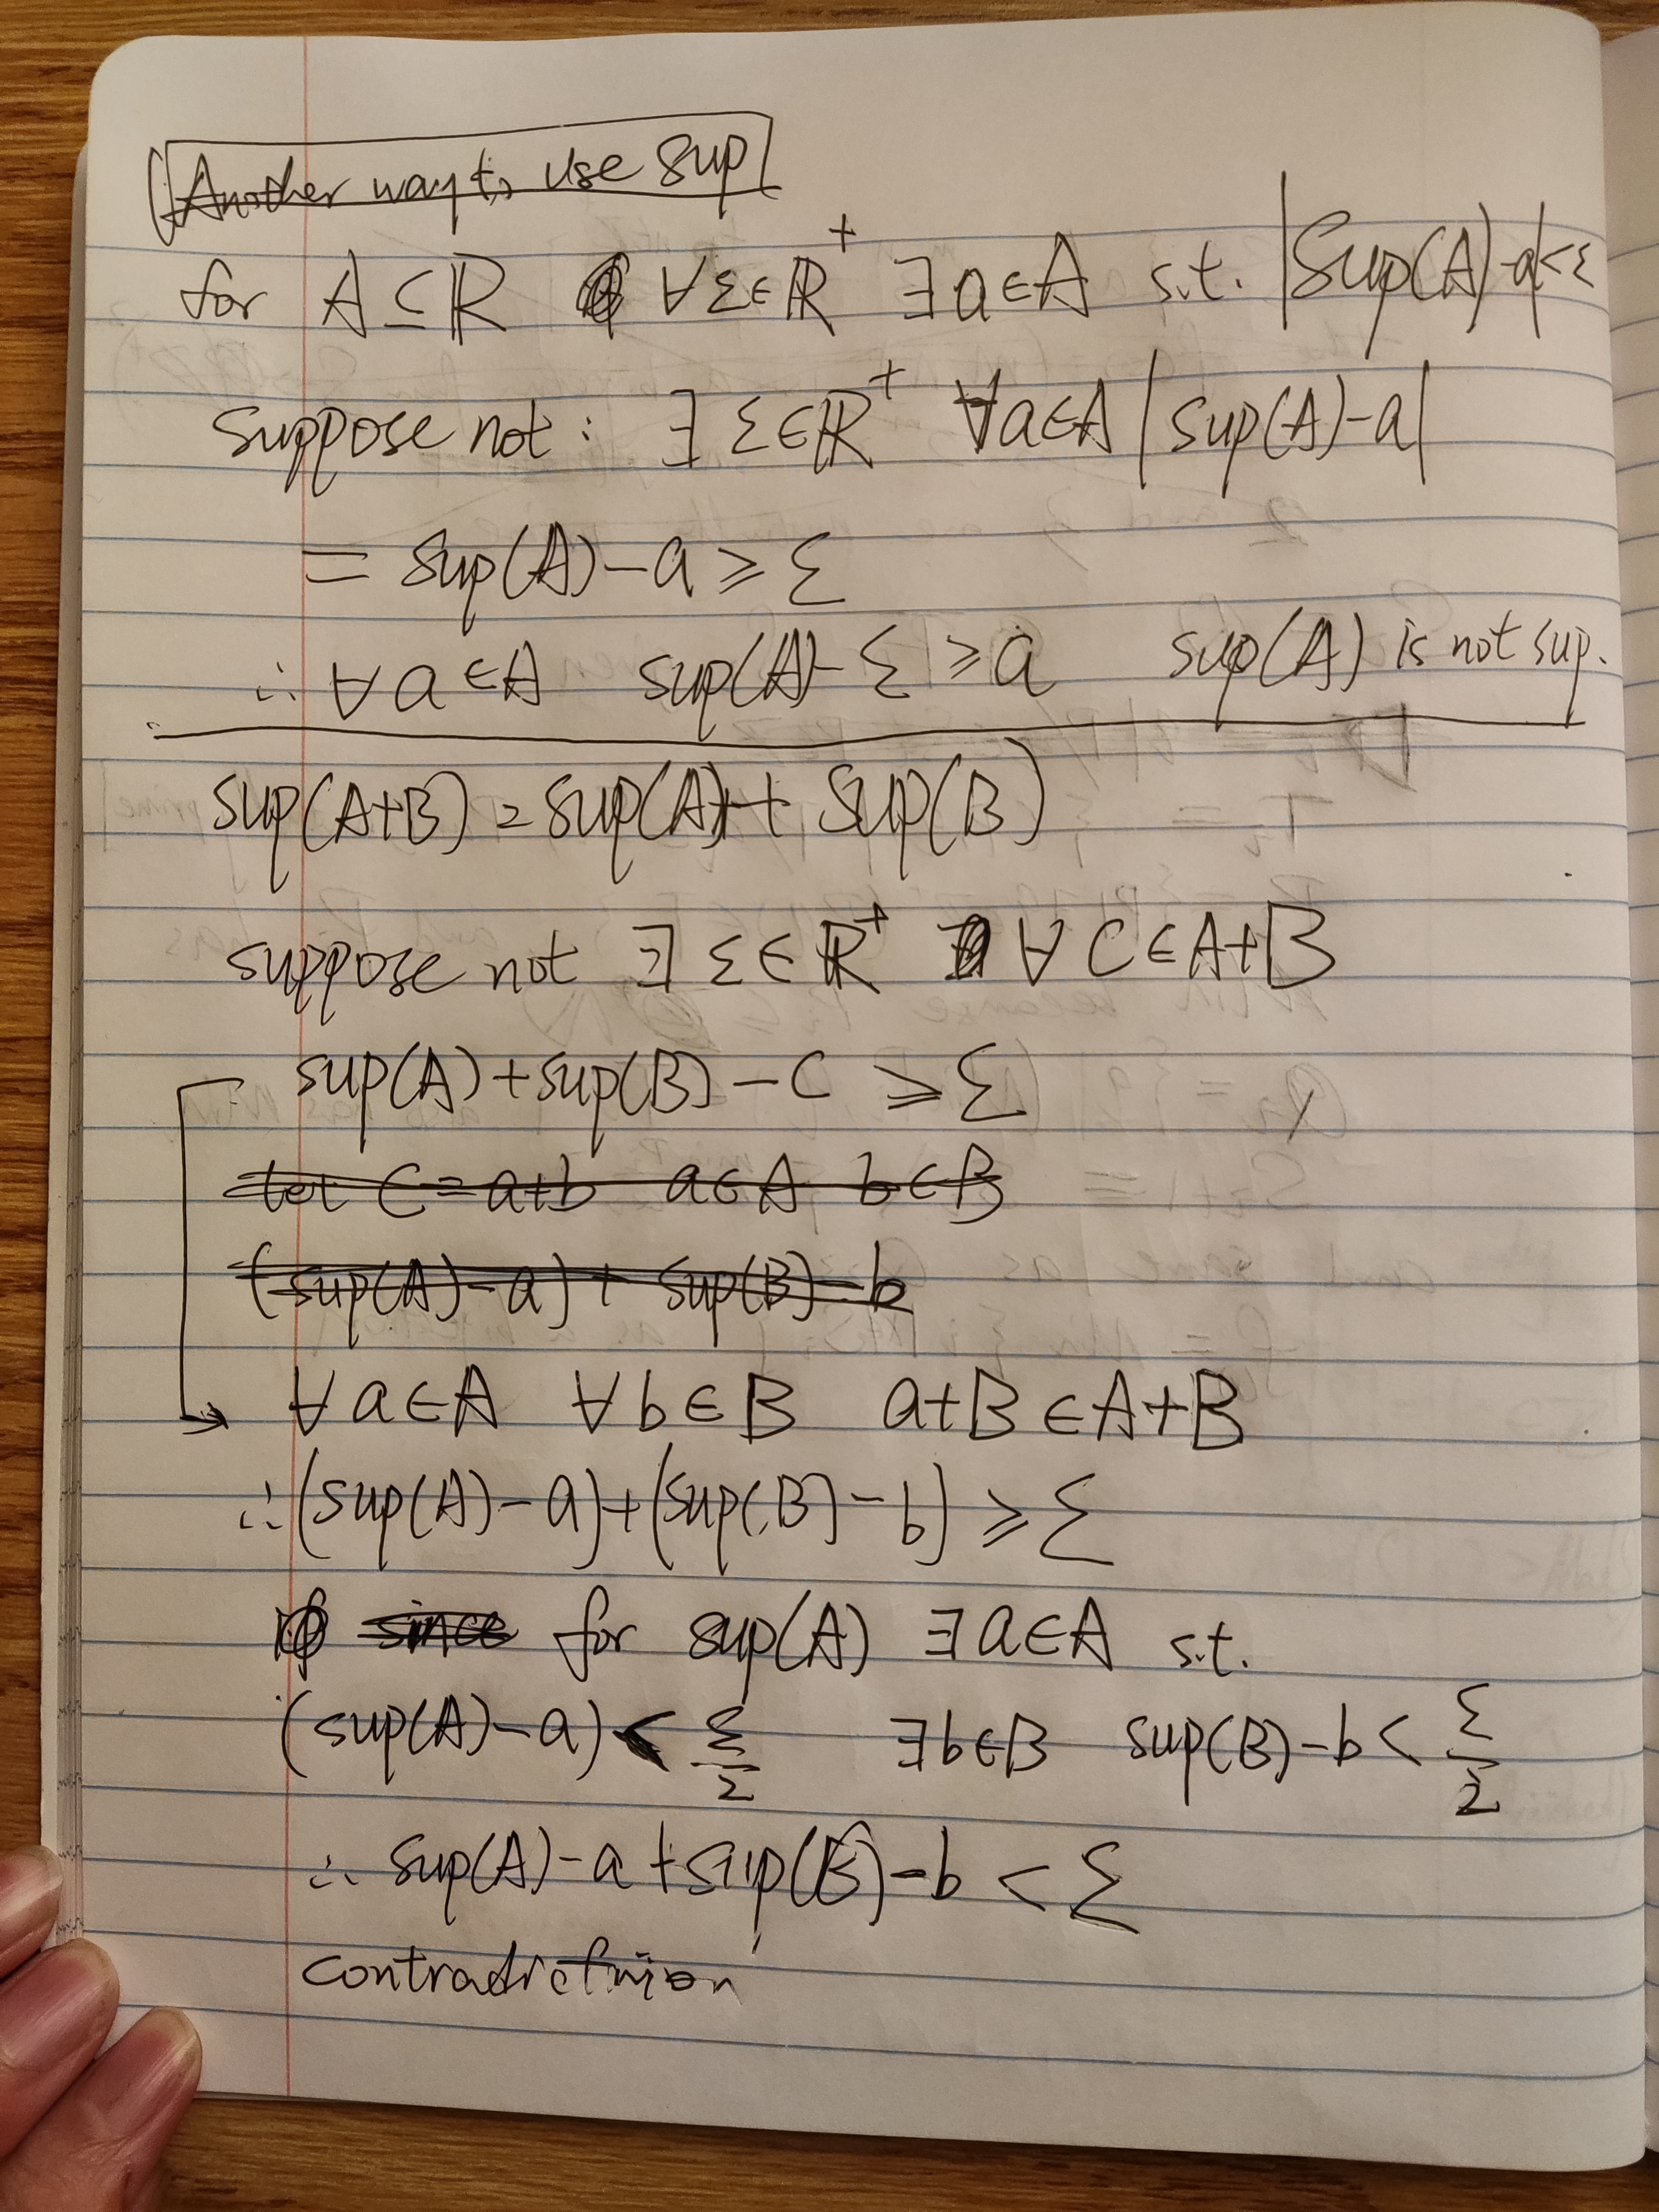 Another way to use Sup
for A ⊆ ℝ ∀ε∈ℝ⁺ ∃a∈A s.t. |Sup(A)-a|<ε
suppose not: ∃ ε∈ℝ⁺ ∀a∈A |sup(A)-a|
= sup(A)-a ≥ ε
∴ ∀a∈A sup(A)-ε ≥ a sup(A) is not sup.
sup(A+B) = sup(A)+ Sup(B)
suppose not ∃ ε∈ℝ⁺ ∀ C∈A+B
sup(A)+sup(B)-C ≥ ε
let C=a+b a∈A b∈B
(sup(A)-a)+ sup(B)-b
∀a∈A ∀b∈B a+B∈A+B
∴(sup(A)-a)+(sup(B)-b) ≥ ε
since for sup(A) ∃a∈A s.t.
(sup(A)-a) < ε/2 ∃b∈B sup(B)-b < ε/2
∴ sup(A)-a+sup(B)-b < ε